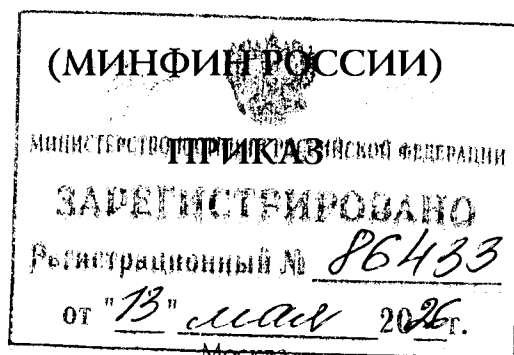 (МИНФИН РОССИИ)
ПРИКАЗ
МИНИСТЕРСТВО ЮСТИЦИИ РОССИЙСКОЙ ФЕДЕРАЦИИ
ЗАРЕГИСТРИРОВАНО
Регистрационный № 86433
от "13" мая 2026 г.
Москва